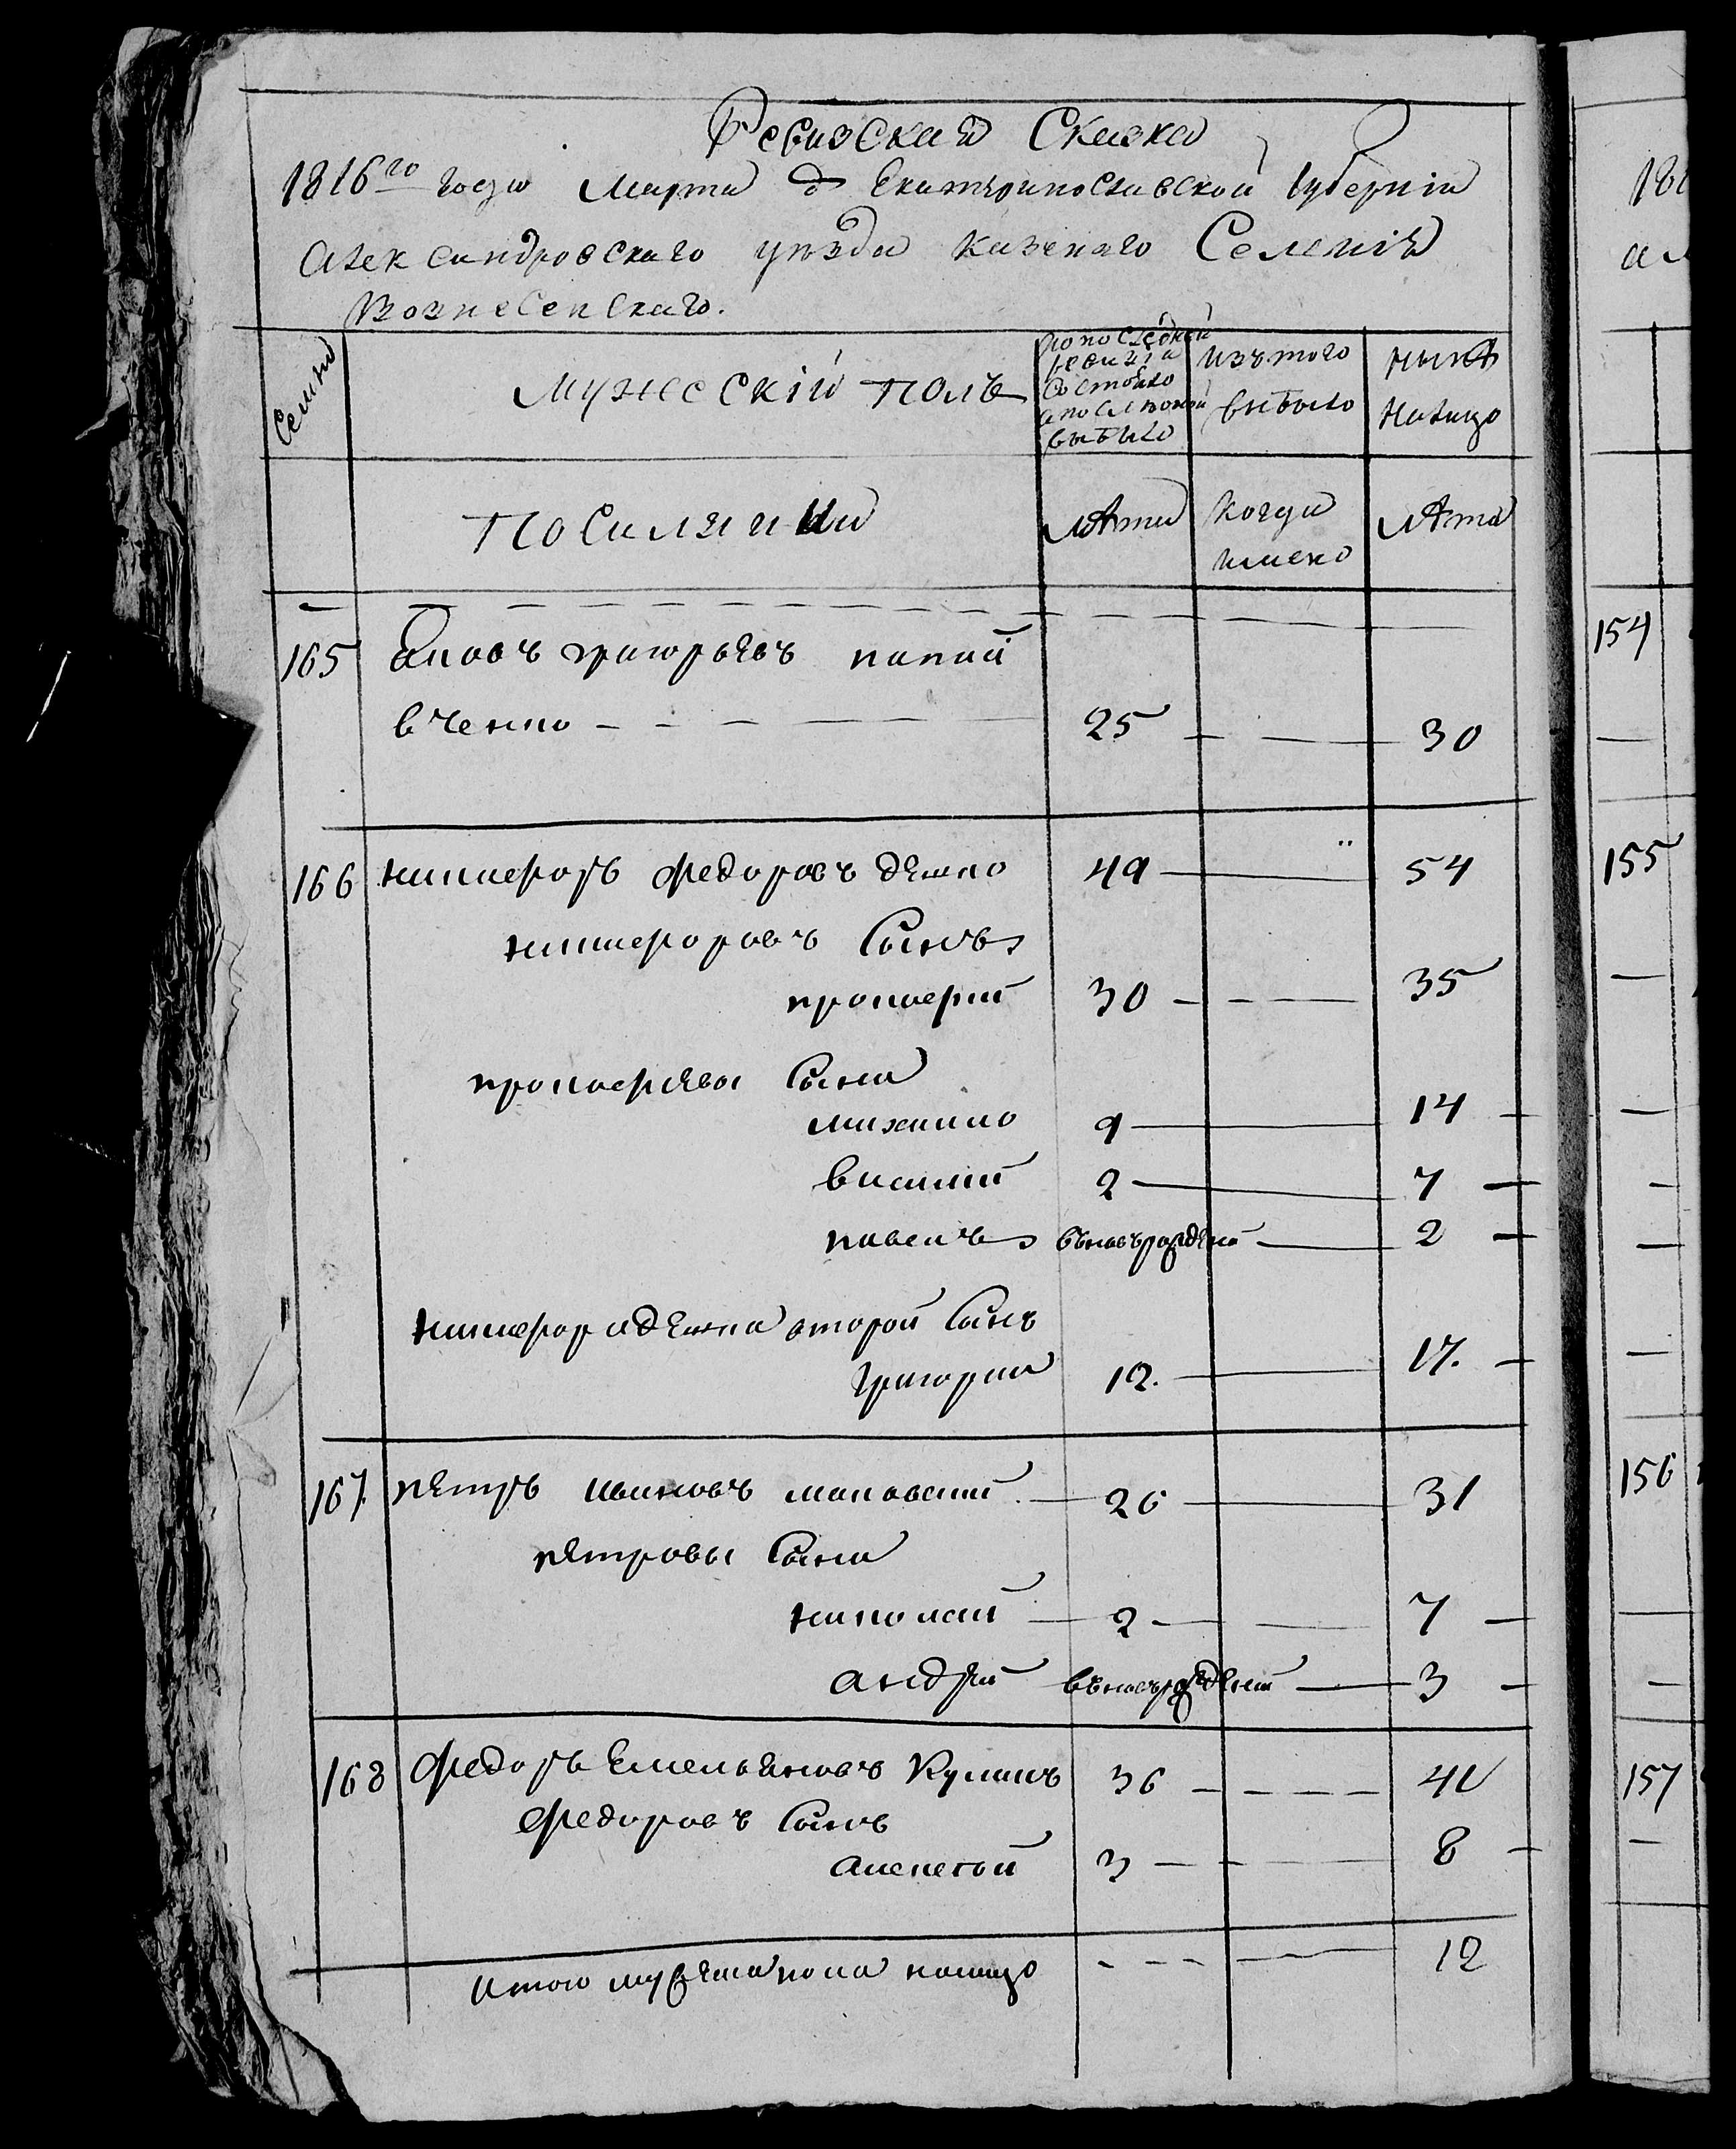 Ревизская Сказка
1816го года Марта д Екатеринославской Губерніи
Александровского уезда казенаго Селенія
Вознесенскаго.
Семьи
мужескій полъ
по последней ревизіи состояло и после оной выбыло
изъ того выбыло
ныне налицо
Посиляники
лета
когда имено
лета
165 Яковъ григорьевъ папай
вченко 25 30
166 никифоръ федоровъ дешко 49 54
никифоровъ Сынъ
прокофий 30 35
прокофиевы Сына
михаило 9 14
василий 2 7
павелъ вьновьрожденй 2
никифора дешка второй Сынъ
григорий 12. 17.
167. петръ ивановъ маковский 26 31
петровы Сына
николай 2 7
андрей вьновьрожденй 3
168 федоръ Емельяновъ Кулишъ 36 41
федоровъ Сынъ
алексей 3 8
итого мужеска пола налицо 12
180
ал
154
155
156
157